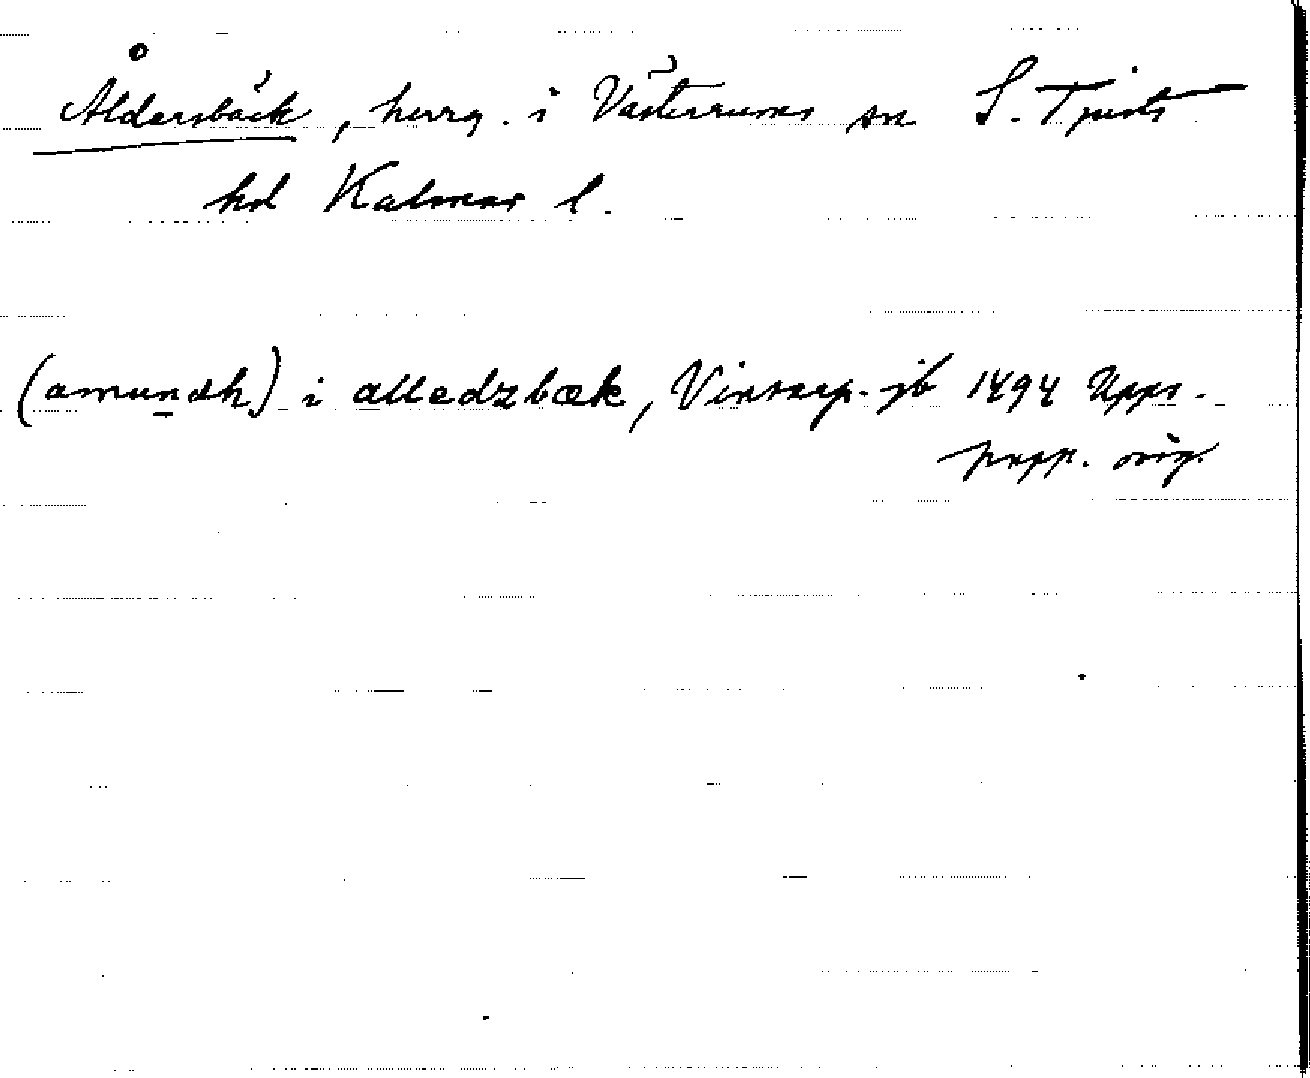 Åldersbäck, herrg. i Västerums sn S. Tjusts
hd Kalmar l.
(amundh) i alledzbæk, Vinstorp. jb 1494 Upps.
papp. orig.